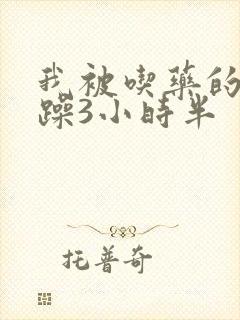 我被喫藥的
躁3小時半
托普奇